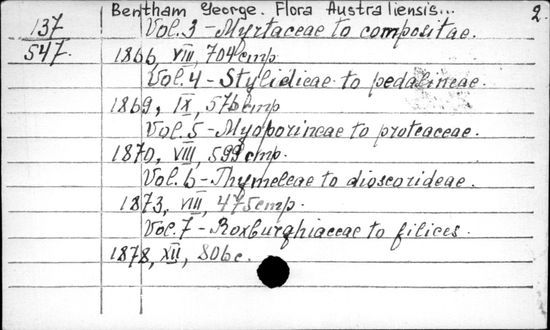 Bentham George. Flora Australiensis... 2.
137
547.
Vol. 3 - Myrtaceae to compositae.
1866, VIII, 704 стр.
Vol. 4 - Stylidieae to pedalineae.
1869, IX, 576 стр
Vol. 5 - Myoporineae to proteaceae.
1870, VIII, 599 стр.
Vol. 6 - Thymeleae to dioscorideae.
1873, VIII, 475 стр.
Vol. 7 - Roxburghiaceae to filices.
1878, XII, 806 с.